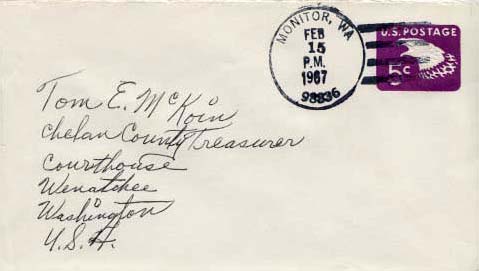 MONITOR, WA
FEB
15
P.M.
1967
98836
U.S. POSTAGE
5c
Tom E. McKoin
Chelan County Treasurer
Courthouse
Wenatchee
Washington
U.S.A.